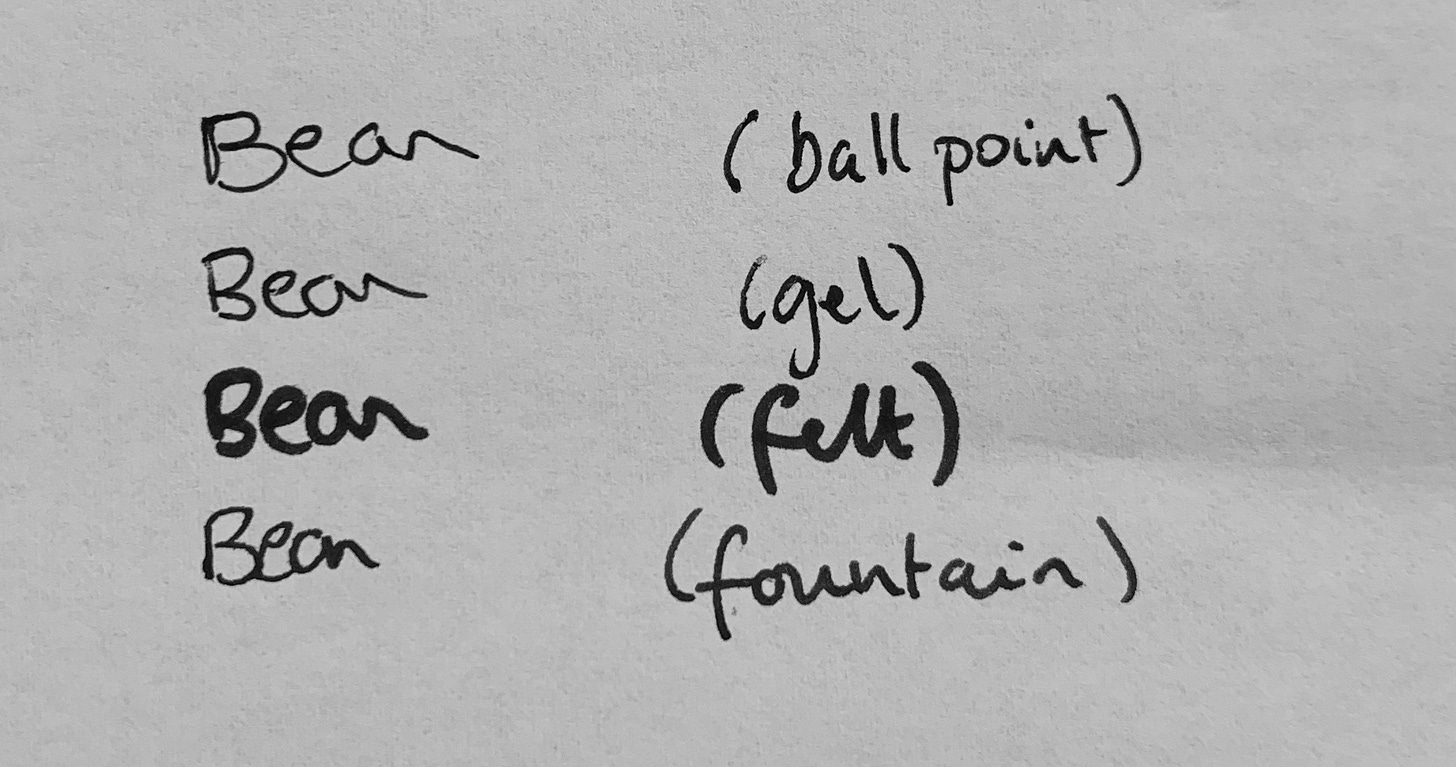 Bean (ball point)
Bean (gel)
Bean (felt)
Bean (fountain)